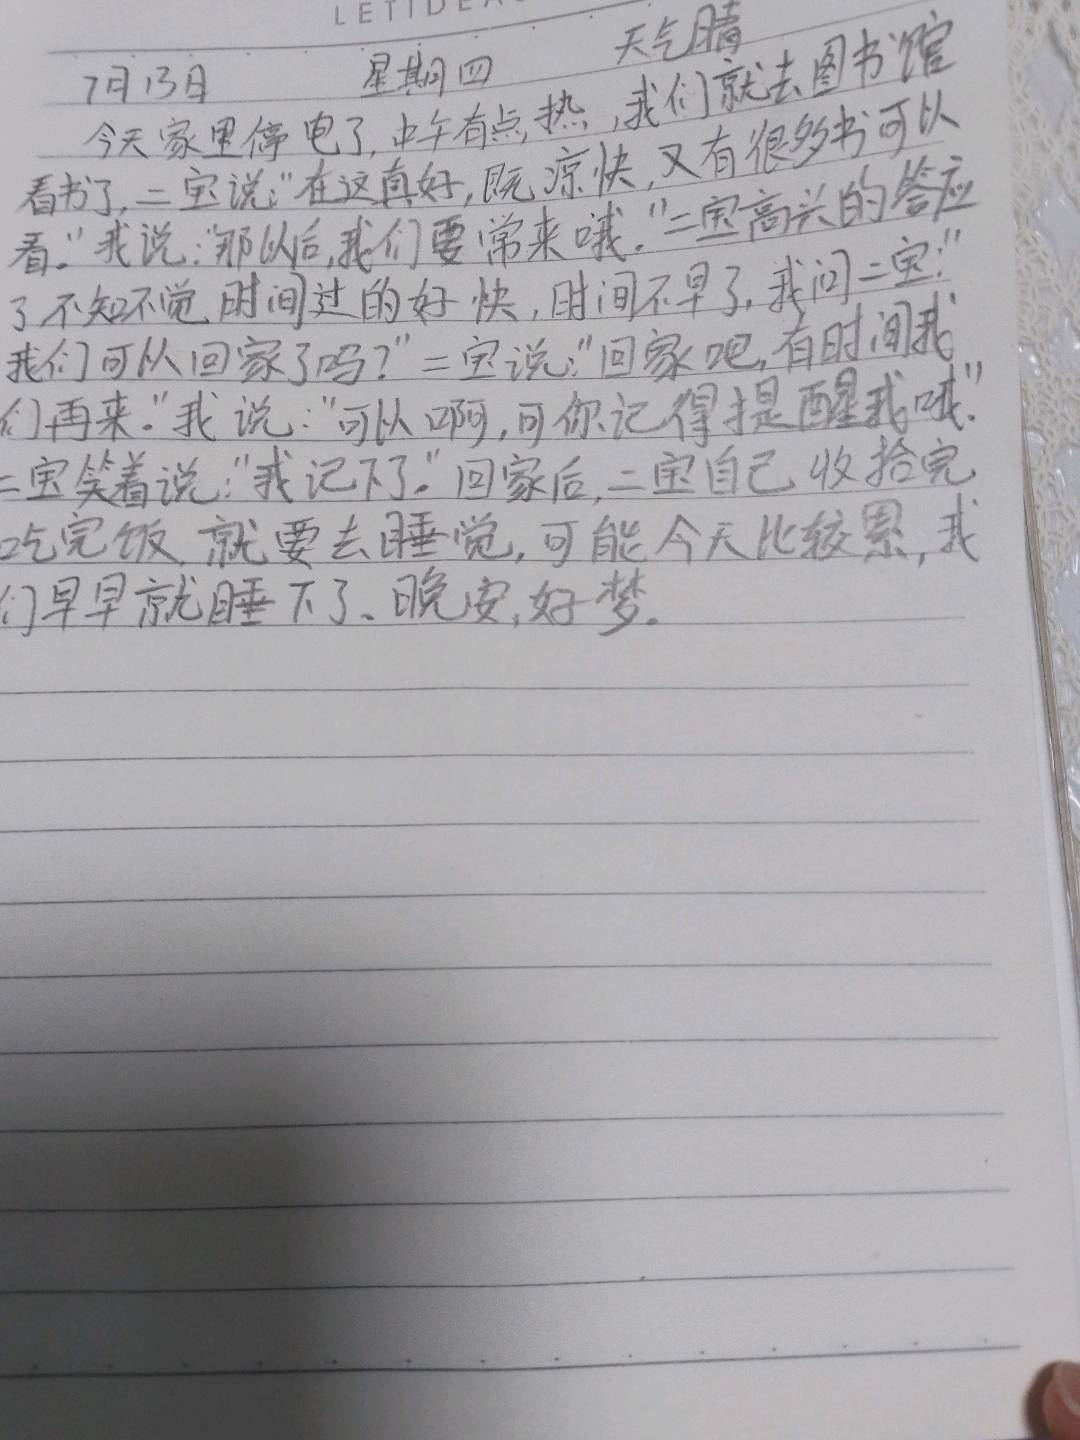 LETIDEA
7月13日 星期四 天气晴
今天家里停电了,中午有点热,我们就去图书馆
看书了,二宝说:"在这真好,既凉快,又有很多书可以
看。"我说:"那以后,我们要常来哦."二宝高兴的答应
了不知不觉时间过的好快,时间不早了,我问二宝:"
我们可以回家了吗?"二宝说:"回家吧,有时间我
们再来."我说:"可以啊,可你记得提醒我哦."
二宝笑着说:"我记下了。"回家后,二宝自己收拾完
吃完饭,就要去睡觉,可能今天比较累,我
们早早就睡下了、晚安,好梦。